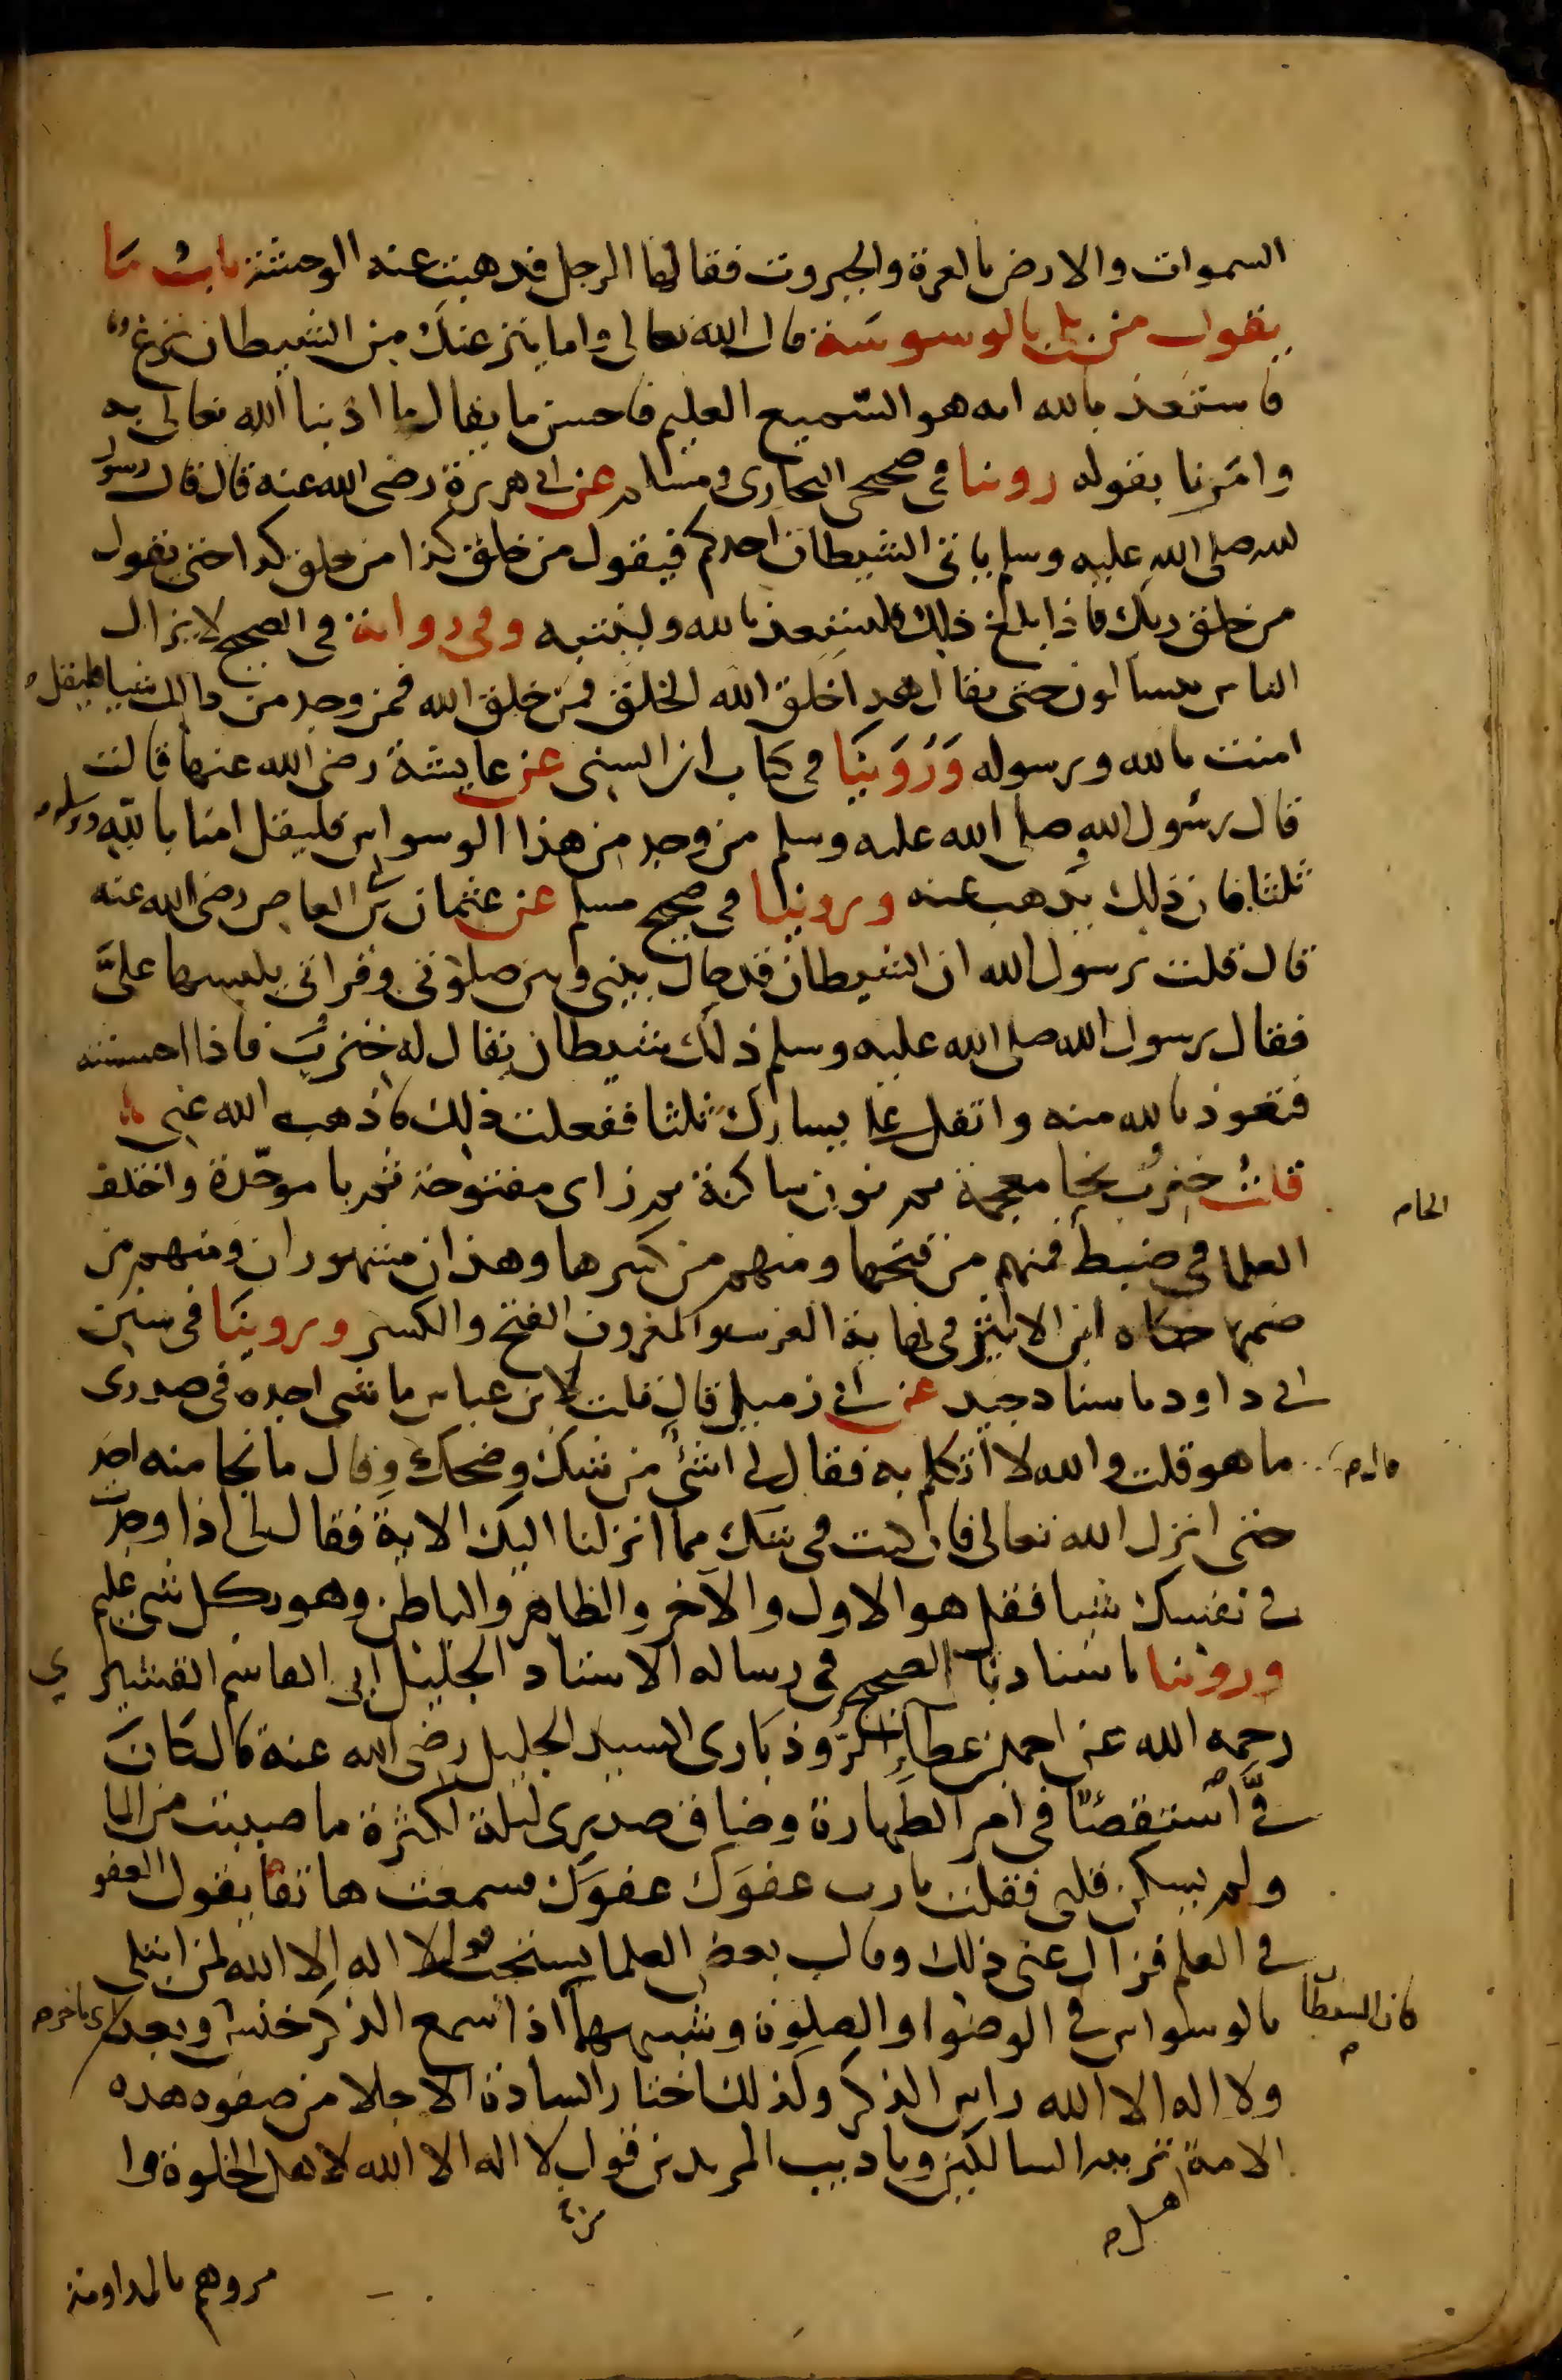 السموات والارض بالعزة والجبروت فقالها الرجل فذهبت عنه الوحشة باب ما
يقول من بلي بالوسوسة قال الله تعالى واما ينزغنك من الشيطان نزغ
فاستعذ بالله انه هو السميع العليم فاحسن ما يقال ما ادبنا الله تعالى به
وامرنا بقوله روينا في صحيحي البخاري ومسلم عن ابي هريرة رضي الله عنه قال قال رسول
لله صلى الله عليه وسلم ياتي الشيطان احدكم فيقول من خلق كذا من خلق كذا حتى يقول
من خلق ربك فاذا بلغ ذلك فليستعذ بالله ولينته وفي رواية في الصحيح لا يزال
الناس يتسالون حتى يقال هذا خلق الله الخلق فمن خلق الله فمن وجد من ذلك شيا فليقل
امنت بالله وبرسوله وروينا في كتاب ابن السني عن عايشة رضي الله عنها قالت
قال رسول الله صلى الله عليه وسلم من وجد من هذا الوسواس فليقل امنا بالله وبرسوله
ثلثا فان ذلك يذهب عنه وروينا في صحيح مسلم عن عثمان بن ابي العاص رضي الله عنه
قال قلت يرسول الله ان الشيطان قد حال بيني وبين صلوتي وقراتي يلبسها علي
فقال رسول الله صلى الله عليه وسلم ذلك شيطان يقال له خنزب فاذا احسسته
فتعوذ بالله منه واتفل على يسارك ثلثا ففعلت ذلك فاذهب الله عني
قلت خنزب بخا معجمة ثم نون ساكنة ثم زاي مفتوحة ثم با موحدة واختلف
العلما في ضبط فمنهم من فتحها ومنهم من كسرها وهذان مشهوران ومنهم من
الخا م
ضمها حكاه ابن الاثير في نهاية الغريب والمعروف الفتح والكسر وروينا في سنن
ابي داود باسناد جيد عن ابي زميل قال قلت لابن عباس ما شي اجده في صدري
ما هو قلت والله لا اتكلم به فقال لي اشئ من شك وضحك وقال ما نجا منه احد
قال م
حتى انزل الله تعالى فان كنت في شك مما انزلنا اليك الاية فقال لي اذا وجدت
في نفسك شيا فقل هو الاول والآخر والظاهر والباطن وهو بكل شي عليم
وروينا باسنادنا الصحيح في رسالة الاستاد الجليل ابي القاسم القشيري
رحمه الله عن احمد بن عطاء الروذباري السيد الجليل رضي الله عنه قال كان
في استقصا في امر الطهارة وضاق صدري ليلة لكثرة ما صببت من الما
ولم يسكن قلبي فقلت يا رب عفوك عفوك فسمعت هاتفا يقول العفو
في العلم فزال عني ذلك وقال بعض العلما يستحب قول لا اله الا الله لمن ابتلي
بالوسواس في الوضوا والصلوة وشبههما اذا سمع الذكر خنس وبعد اي تاخر م
فان الشيطان م
ولا اله الا الله راس الذكر ولذلك اختار السادة الاجلا من صفوة هذه
الامة تربية السالكين وتاديب المريدين قول لا اله الا الله لاهل الخلوة وا
اهل م
مروهم بالمداومة